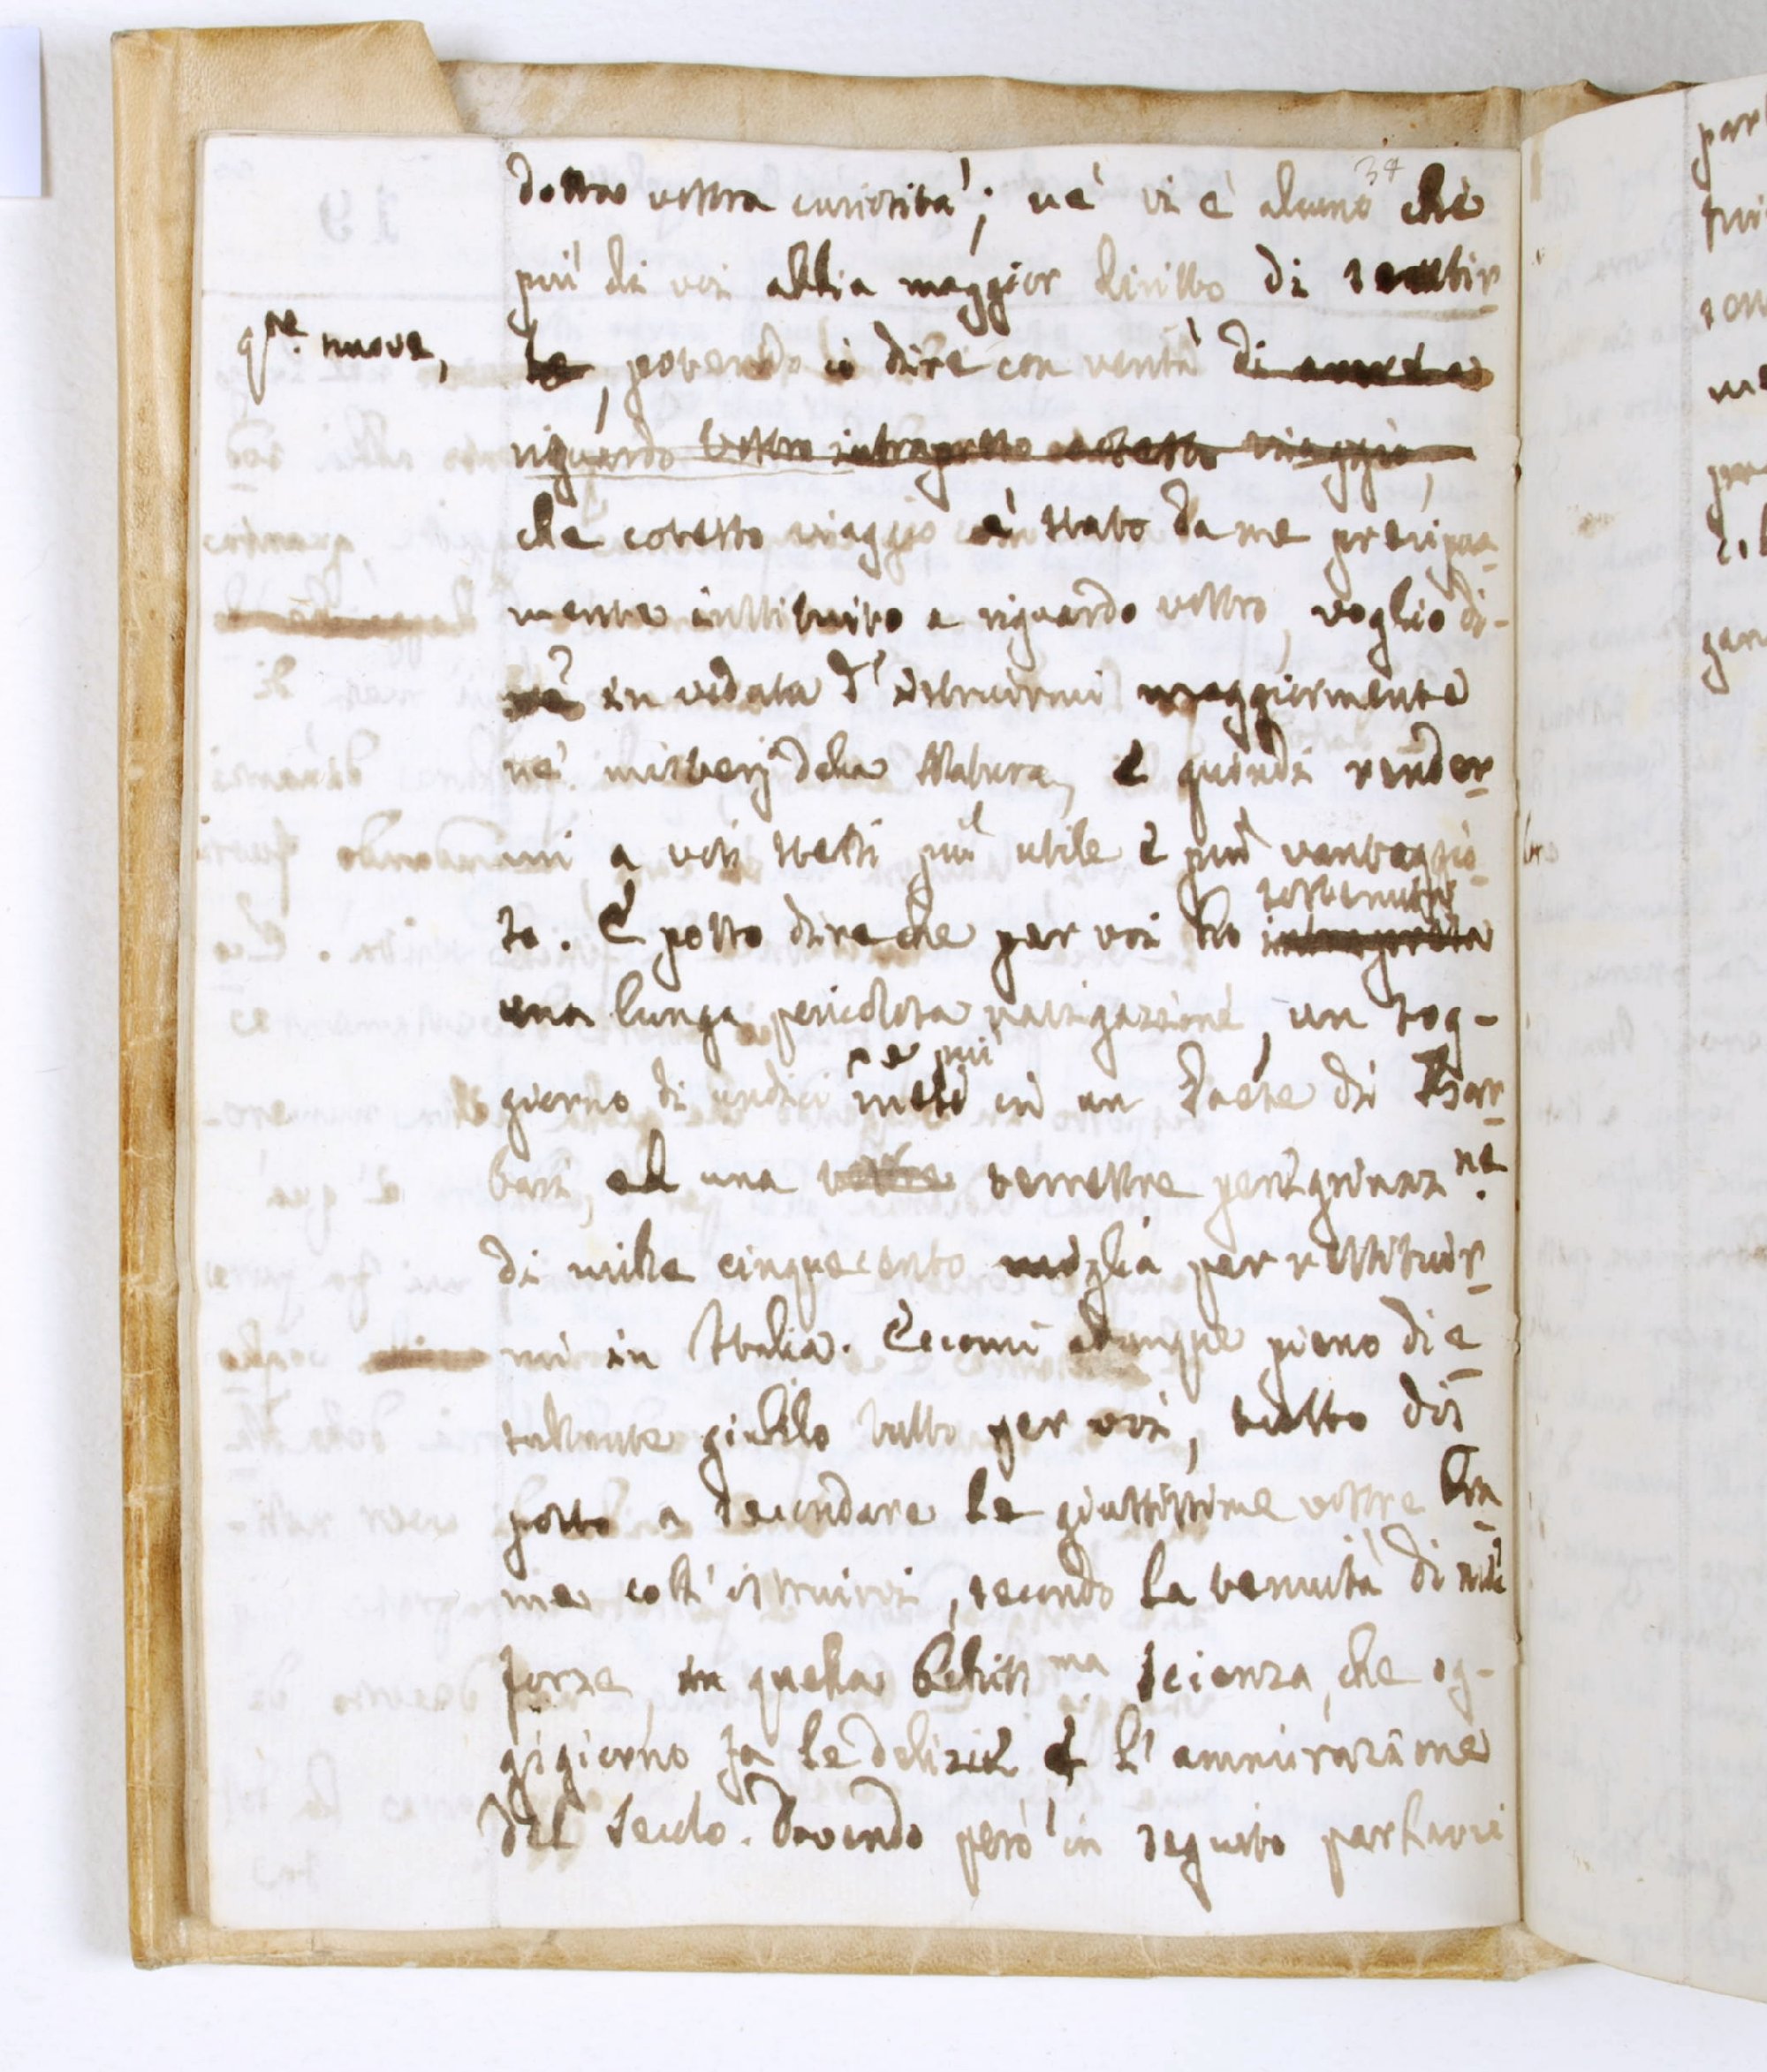 38
dotta vostra curiosità; nè vi è alcuno che
più di voi abbia maggior diritto di sentir
qste nuove,
le, potendo io dire con verità di avere a
riguardo vostro intrapreso cotesto viaggio,
che cotesto viaggio è stato da me precipua
mente instituito a riguardo vostro, voglio di-
re in veduta d'istruirmi maggiormente
ne' misterj della Natura, e quindi render
mi a voi stessi più utile e più vantaggio
so. E posso dire che per voi ho intrapresa
sostenuta
una lunga pericolosa navigazione, un sog-
giorno di undici mesi in un Paese di Bar
e più
bari, ed una terrestre peregrinazne
di mille cinquecento miglia per restituir
mi in Italia. Eccomi adunque pieno di e
sultante giubilo tutto per voi, tutto dis
posto a secondare le giustissime vostre bra
me coll'istruirvi, secondo la tenuità di mie
forze, in quella bellissma scienza, che og-
gigiorno fa le delizie e l'ammirazione
del secolo. Dovendo però in seguito parlarvi